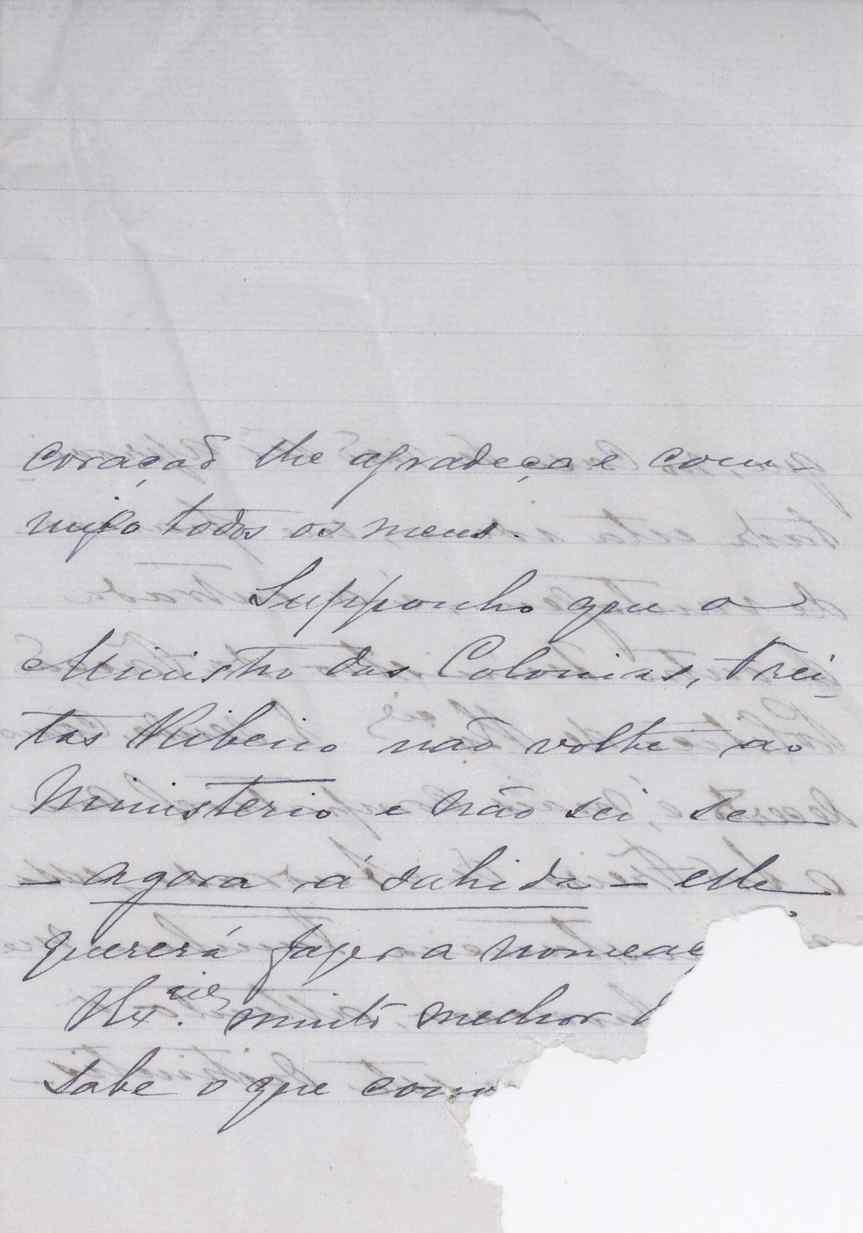 coração lhe agradeça e com-
migo todos os meus.
Supponho que o
Ministro das Colonias, Frei-
tas Ribeiro não volte ao
Ministerio e não sei se
- agora á sahida - elle
quererá fazer a nomeaç
V. Ex.cia muito melhor d
sabe o que conv